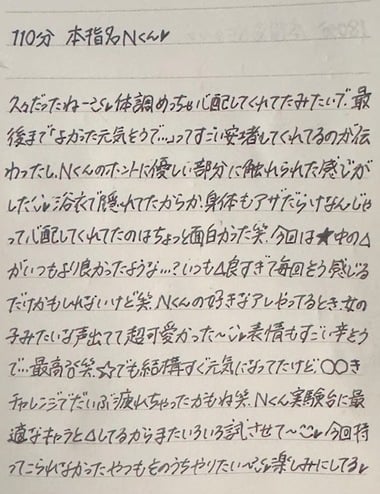 110分 本指名Nくん♥
久々だったね〜♡体調めっちゃ心配してくれてたみたいで、最
後まで「よかった元気そうで…」ってすごい安堵してくれてるのが伝
わったし、Nくんのホントに優しい部分に触れられた感じが
した♡浴衣で隠れてたからか身体もアザだらけなんじゃ
って心配してくれてたのはちょっと面白かった笑 今回は★中の△
がいつもより良かったような…?いつも△良すぎて毎回そう感じる
だけかもしれないけど笑、Nくんの好きなアレやってるとき、女の
子みたいな声出てて超可愛かった〜♡表情もすごい辛そう
で…最高な笑、☆でも結構すぐ元気になってたけど、〇〇き
チャレンジでだいぶ疲れちゃったかもね笑、Nくん実験台に最
適なキャラと△してるからまたいろいろ試させて〜♡今回持
ってこられなかったやつもそのうちやりたい〜♡楽しみにしてる♥